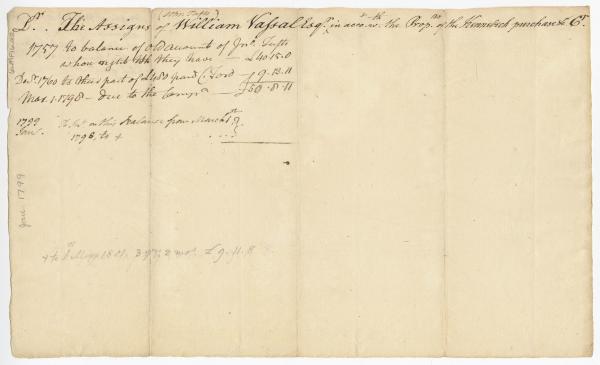 (John Tufts)
Dr. . The Assigns of William Vassal Esqr. in acco. wth. the Propns. of the Kennebeck purchase Cr
1757 to balance of old account of Jno. Tufts
whose right they have — £40.15.0
Decr. 1760 to their part of £480 paid Ford 9.13.11
Mar. 1. 1798 — due to the Compy. £50.8.11
1799 To Int. on this Balance from March 1st
Jany. 1798, to
Jan. 1799
to 1st May 1801, 3 yrs. 2 mos. £9.11.8